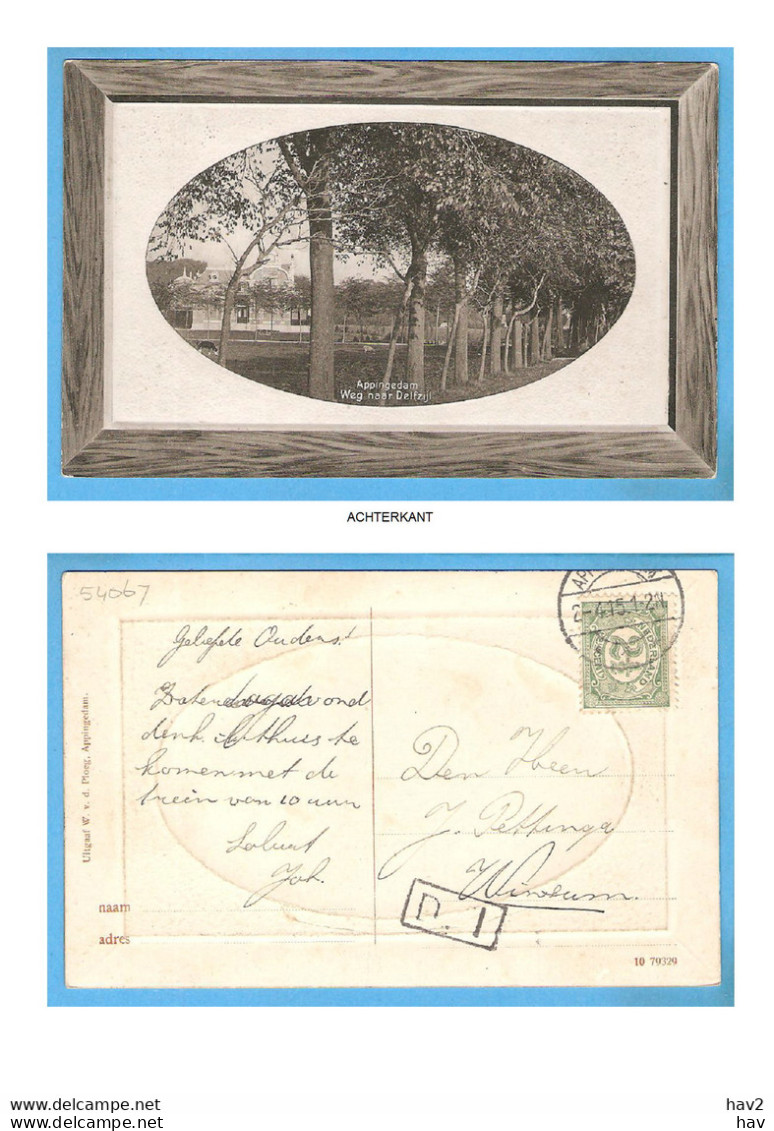 Appingedam
Weg naar Delfzijl
ACHTERKANT
54067
2-4.15.1-2N
NEDERLAND
2½
Geliefde Ouders!
avond
denk ik thuis te
komen met de
trein van 10 uur
Saluut
Joh.
Den Heer
J. Pettinga
Winsum.
D. 1
Uitgaaf W. v. d. Ploeg, Appingedam.
naam
adres
10 79329
hav2
www.delcampe.net
hav